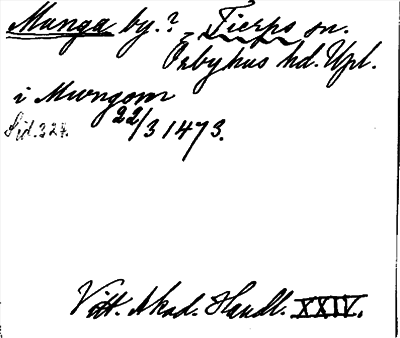 Munga by.? - Tierps sn.
Örbyhus hd. Upl.
i Mwngom
22/3 1473.
Sid. 324.
Vitt. Akad. Handl. XXIV.